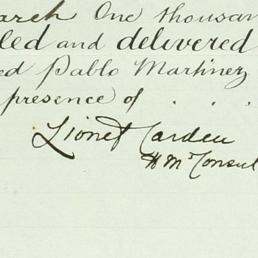 arch One thousan
led and delivered
ed Pablo Martinez
presence of . . .
Lionel Carden
H M Consul